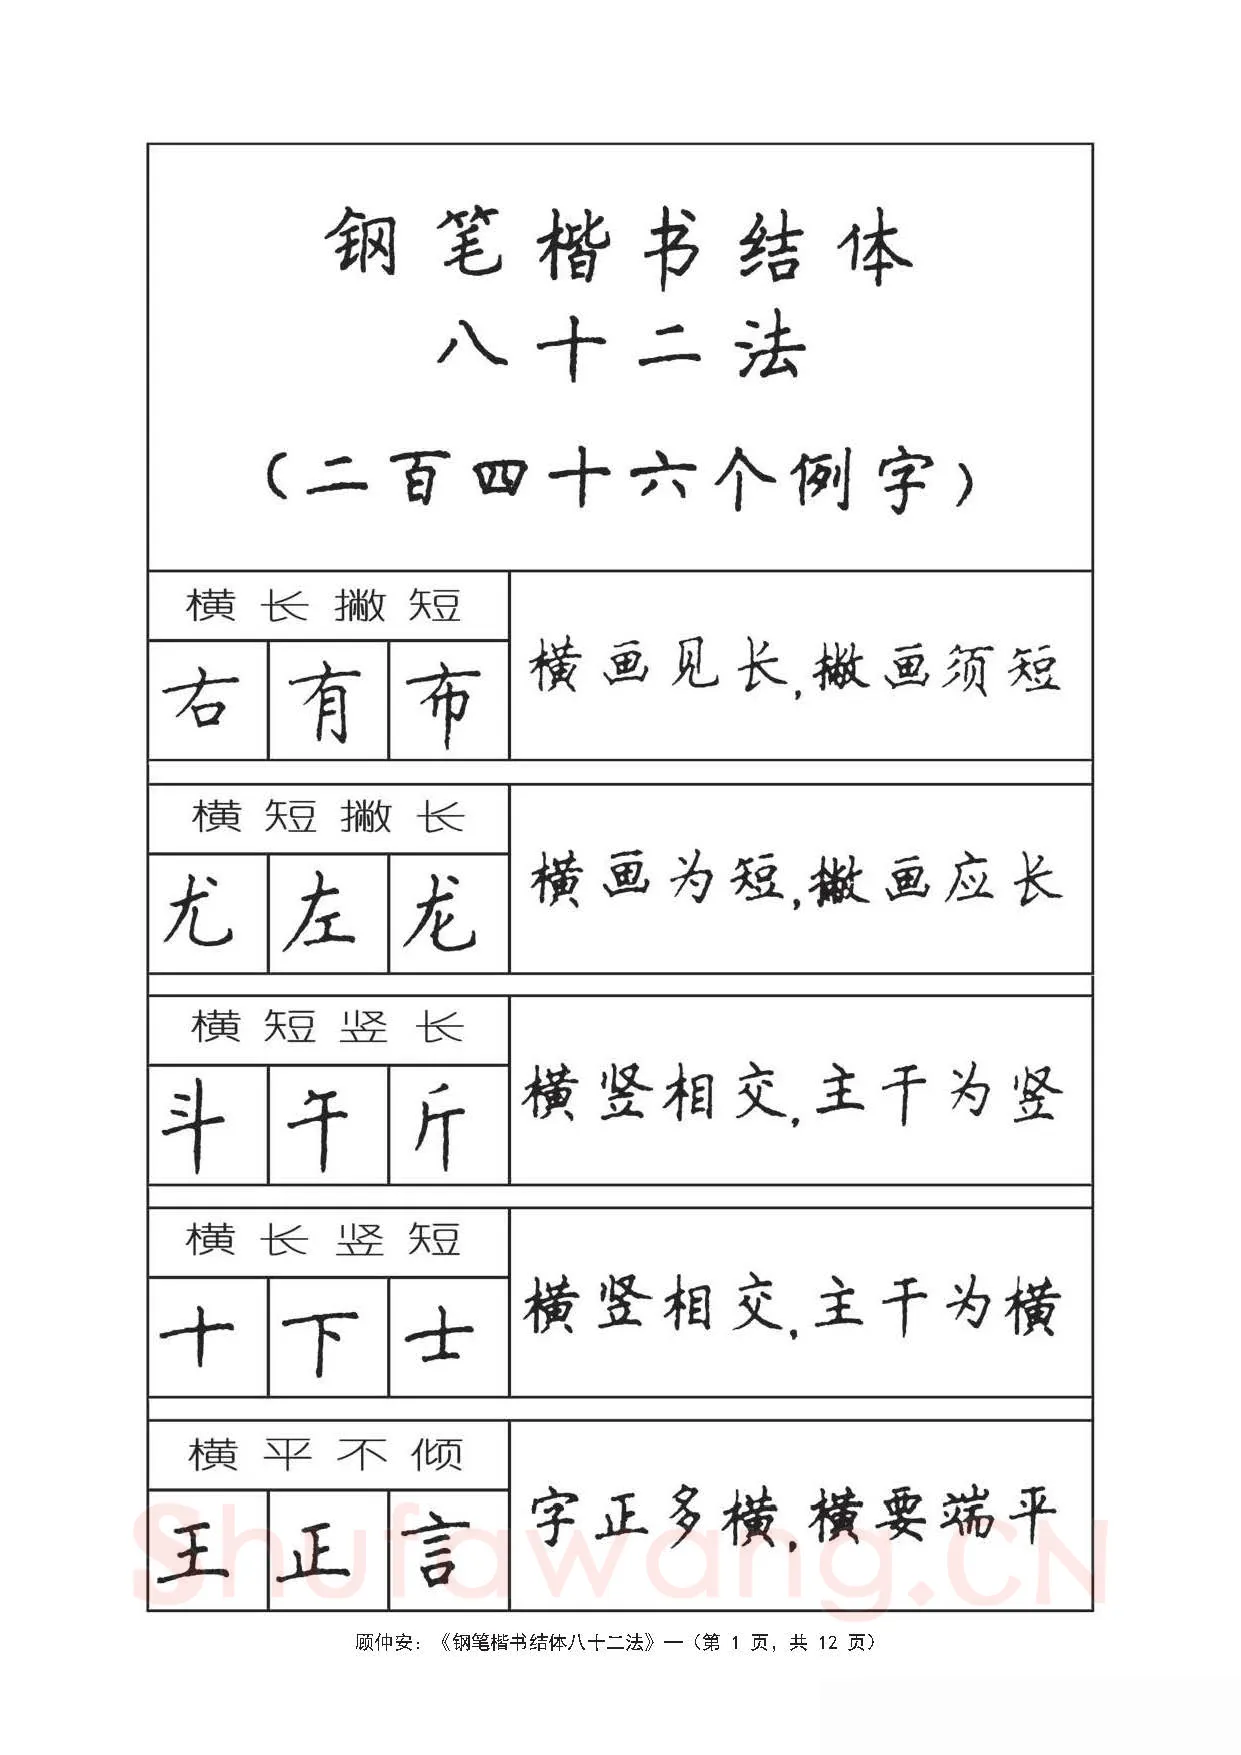 钢笔楷书结体
八十二法
（二百四十六个例字）
横长撇短
右 有 布
横画见长,撇画须短
横短撇长
尤 左 龙
横画为短,撇画应长
横短竖长
斗 午 斤
横竖相交,主干为竖
横长竖短
十 下 士
横竖相交,主干为横
横平不倾
王 正 言
字正多横,横要端平
Shufawang.CN
顾仲安：《钢笔楷书结体八十二法》—（第 1 页，共 12 页）